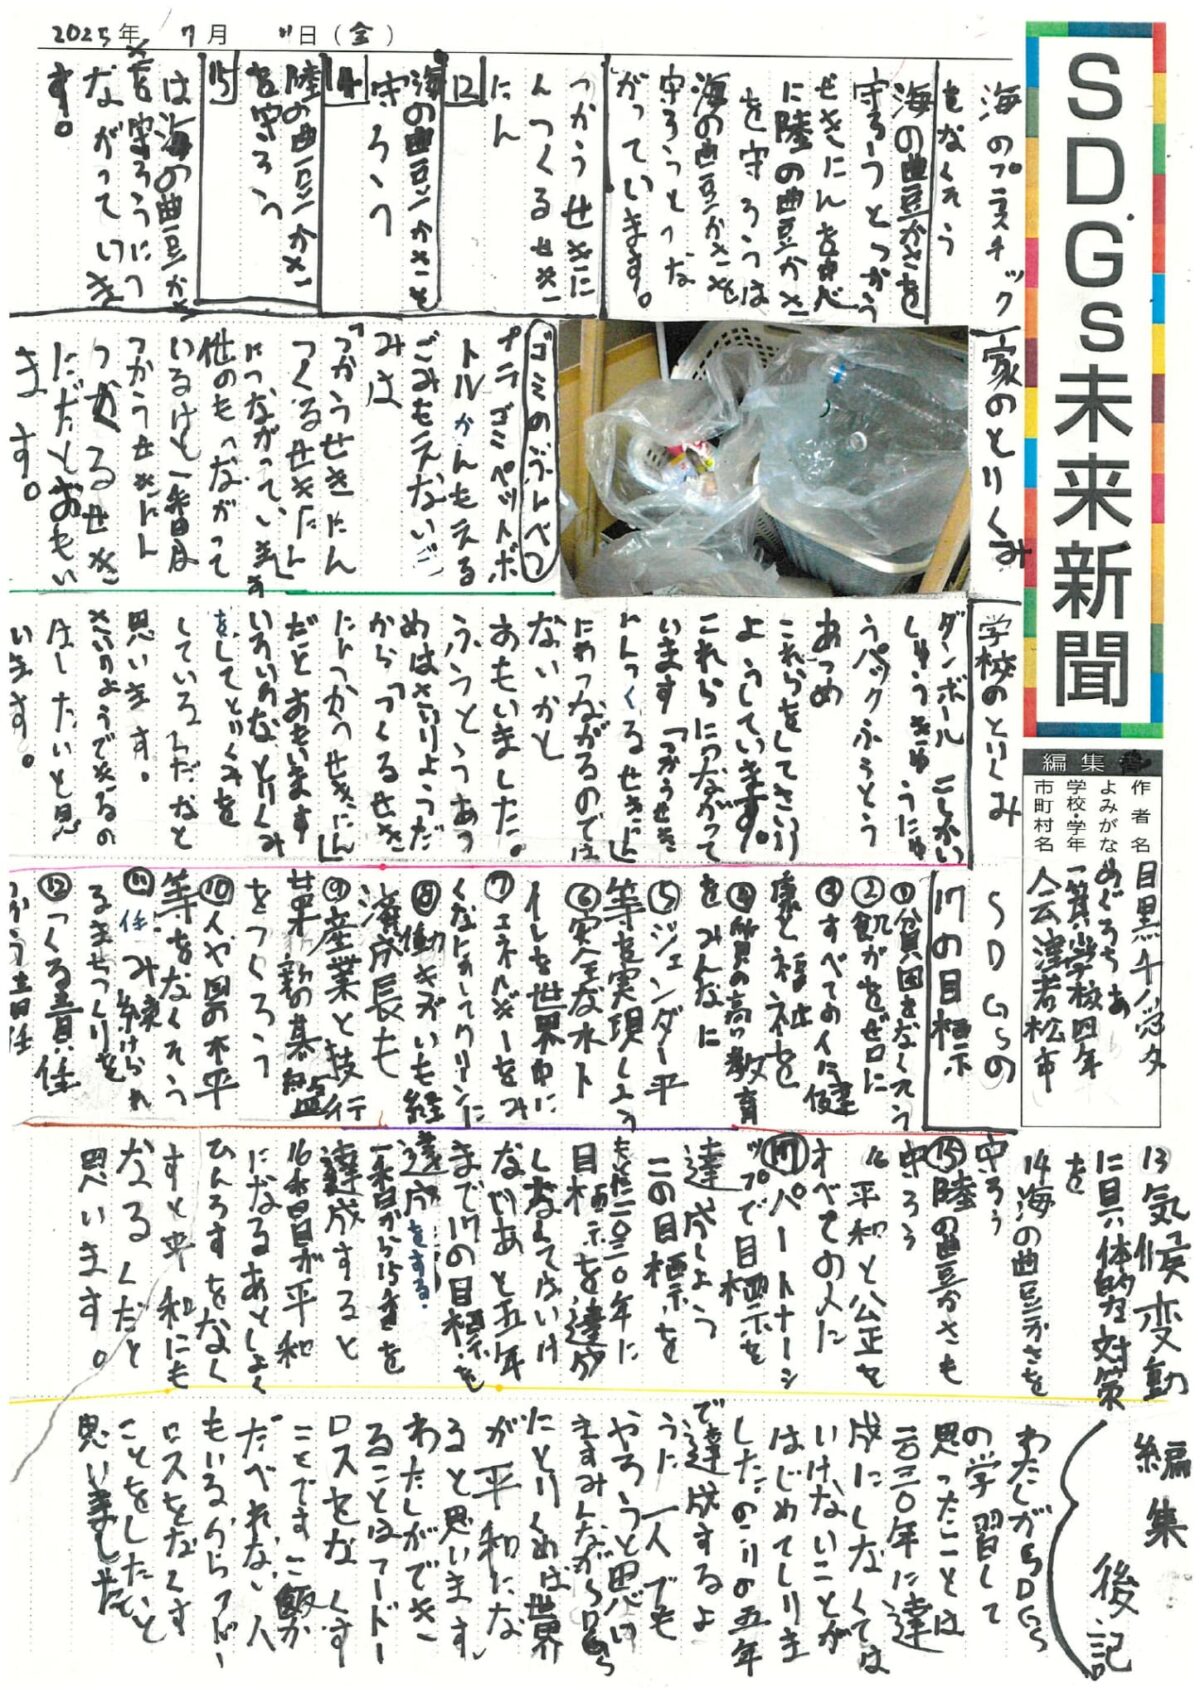 2025年 7月 11日（金）
SDGs未来新聞
編集
作者名
よみがな めぐろちあ
学校・学年 一箕小学校四年
市町村名 会津若松市
海のプラスチック
をなくそう
海の豊かさを
守ろうとつかう
せきにん
に陸の豊かさ
を守ろうは
海の豊かさを
守ろうとつな
がっています。
つかうせきに
んつくるせき
にん
12
海の豊かさを
守ろう
14
陸の豊かさ
を守ろう
15
は海の豊かさ
を守ろうにつ
ながっていま
す。
家のとりくみ
ゴミのぶんべつ
プラゴミペットボ
トルかんもえる
ごみもえないご
みは
「つかうせきにん
つくるせきにん」
につながっています
他のもつながって
いるけど一番は
つかうせきにん
つくるせき
にんだとおもい
ます。
学校のとりくみ
ダンボール
しゅうぎゅうにゅ
うパックふうとう
あつめ
これらをしてさいり
ようしています。
これらにつながって
います「つかうせき
にんつくるせきにん」
にもつながるのでは
ないかと
おもいました。
ふうとうあつ
めはさいりようだ
から「つくるせき
にんつかうせきにん」
だとおもいます
いろいろなとりくみ
をしてとりくみを
しているんだなと
思います。
さいりようできるの
はしたいと思
います。
SDGsの
17の目標
①貧困をなくそう
②飢がをゼロに
③すべての人に健
康と福祉を
④質の高い教育
をみんなに
⑤ジェンダー平
等を実現しよう
⑥安全な水トト
イレを世界中に
⑦エネルギーをみ
んなにそしてクリーンに
⑧働きがいも経
済成長も
⑨産業と技術
革新の基盤
をつくろう
⑩人や国の不平
等をなくそう
⑪住み続けられ
るまちづくりを
⑫つくる責任
つかう責任
13気候変動
に具体的な対策
を
14海の豊かさを
守ろう
⑮陸の豊かさも
守ろう
16平和と公正を
すべての人に
⑰パートナーシ
ップで目標を
達成しよう
この目標を
二〇三〇年に
目標を達成
しなくてはいけ
ないあと五年
まで17の目標を
達成をする。
一番から15番を
達成すると
16番が平和
になるあとしょく
ひんろすをなく
すと平和にも
なるくだと
思います。
編集後記
わたしがSDGs
の学習して
思ったことは
二〇三〇年に達
成にしなくては
いけないことが
はじめてしりま
したのこりの五年
で達成するよ
うに一人でも
やろうと思い
ますみんながSDGs
にとりくめば世界
が平和にな
ると思います。
わたしができ
ることはフード
ロスをなくす
ことですご飯が
たべれない人
もいるからフード
ロスをなくす
ことをしたいと
思いました